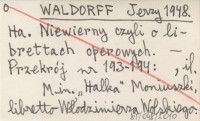 WALDORFF Jerzy 1948.
Ha. Niewierny czyli o li-
brettach operowych. —
Przekrój nr 193-194: , il.
M.in. „Halka" Moniuszki,
libretto Włodzimierza Wolskiego.